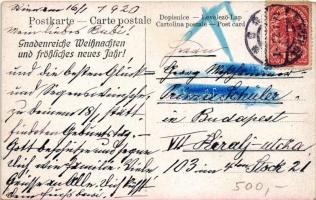 Wien am 16/1 1920
Postkarte - Carte postale
Dopisnice - Levelező-Lap
Cartolina postale - Post card
Mein liebes
Gnadenreiche Weihnachten
und fröhliches neues Jahr!
und die besten Glück-
und Segenswünsche
zu Deinem 18/1 statt-
findenden Geburtstag.
Gott beschütze und segne
Dich und Familie. Viele
Grüsse an Alle. Dich küsst
Georg
Schüler
in Budapest
VII Király-utcza
103 im 4ten Stock 21
500,-